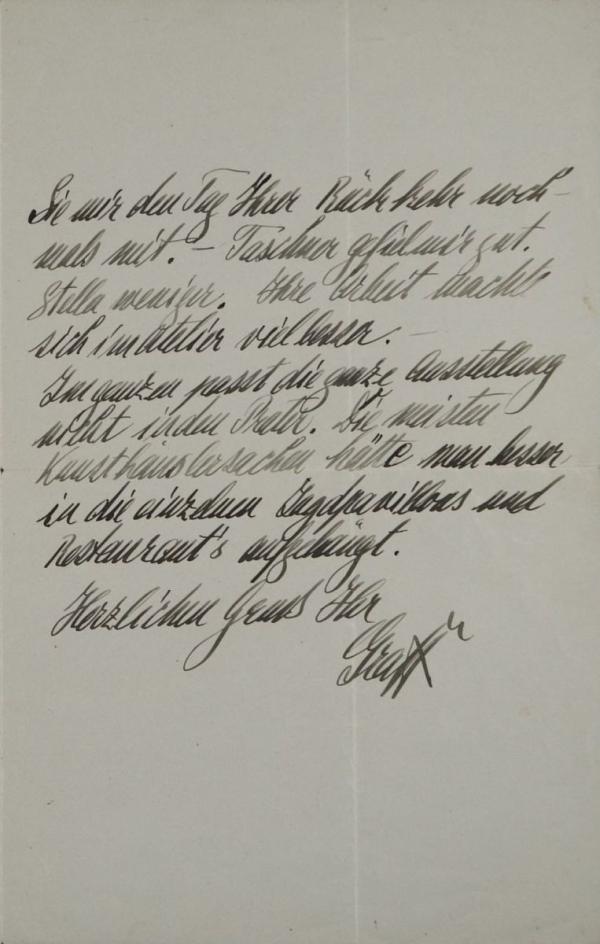 Sie mir den Tag Ihrer Rückkehr noch-
mals mit. – Taschner gefiel mir gut.
Stella weniger. Ihre Arbeit macht
sich im Atelier viel besser. –
Im ganzen passt die ganze Ausstellung
nicht in den Prater. Die meisten
Künsthäuslersachen hätte man besser
in die einzelnen Jagdpavillons und
Restaurant's aufgehängt.
Herzlichen Gruß Ihr